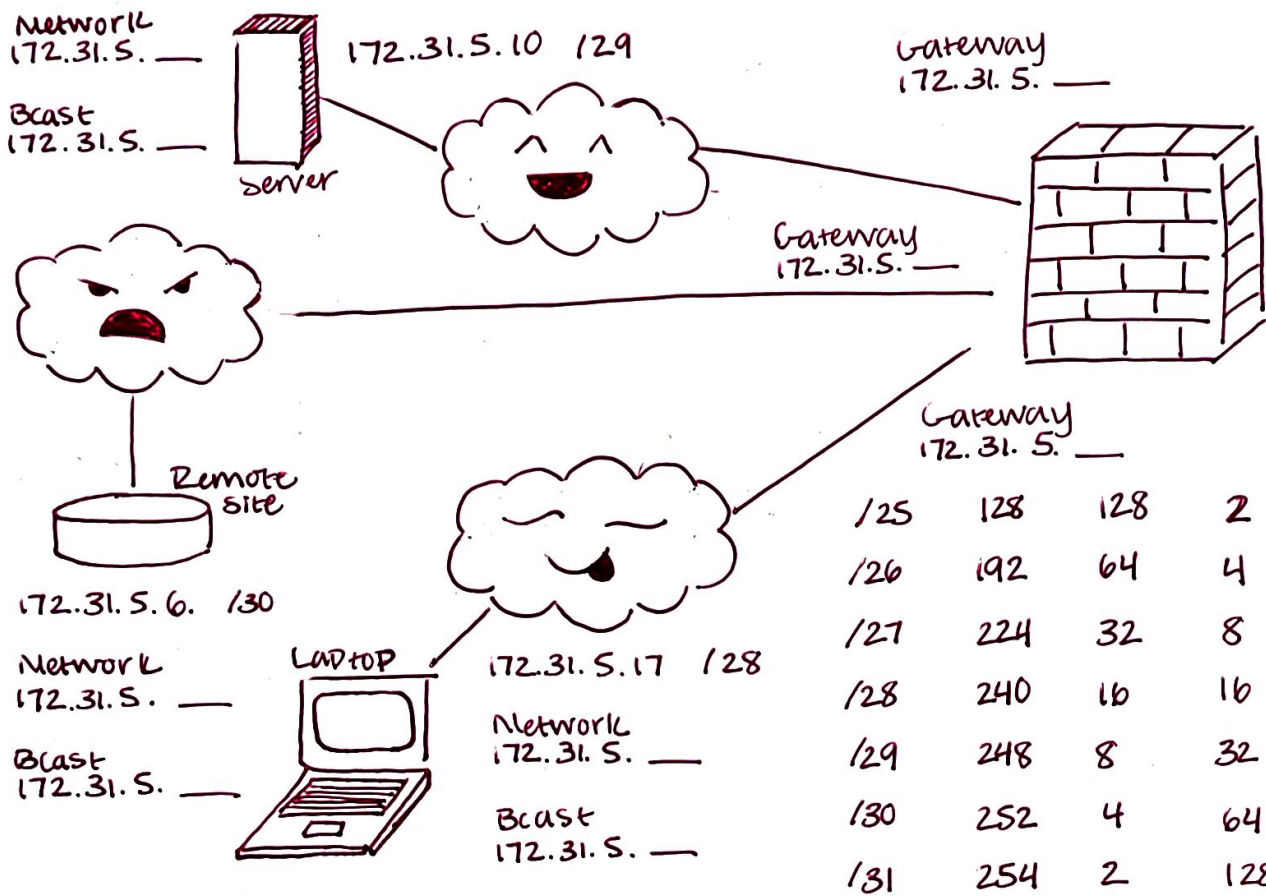 Network
172.31.5. __
Bcast
172.31.5. __
Server
172.31.5.10 /29
Gateway
172.31.5. __
Gateway
172.31.5. __
Gateway
172.31.5. __
Remote
site
172.31.5.6. /30
Network
172.31.5. __
Bcast
172.31.5. __
Laptop
172.31.5.17 /28
Network
172.31.5. __
Bcast
172.31.5. __
/25 128 128 2
/26 192 64 4
/27 224 32 8
/28 240 16 16
/29 248 8 32
/30 252 4 64
/31 254 2 128